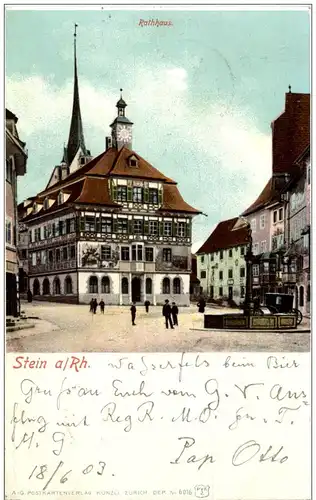 Rathhaus.
Stein a/Rh. beim Bier
Gruss an Euch vom G. V. Aus
mit Reg R. M. O. T.
M. G Papa Otto
18/6 03.
A.G. POSTKARTENVERLAG KÜNZLI ZÜRICH DEP. No 6016